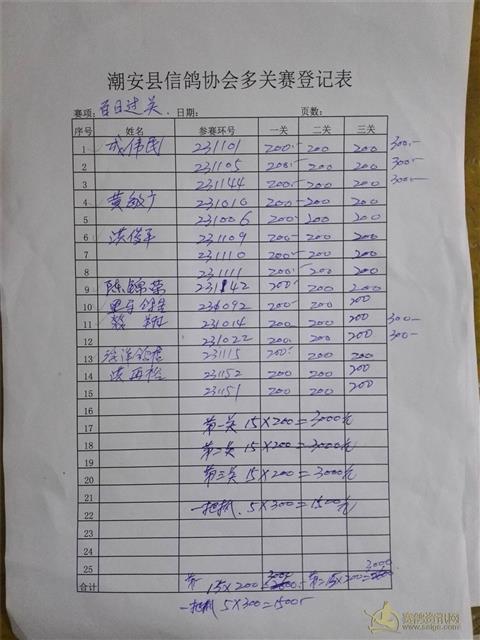 潮安县信鸽协会多关赛登记表
赛项: 百日过关. 日期: 页数:
序号 姓名 参赛环号 一关 二关 三关
1 成伟民 231101 200.- 200 200 300.-
2 231105 200.- 200 200 300.-
3 231144 200.- 200 200 300.-
4 黄敏广 231010 200- 200 200
5 231006 200- 200 200
6 洪俊平 231109 200- 200 200
7 231110 200- 200 200
8 231111 200.- 200 200
9 陈锦荣 231842 200.- 200 200
10 231092 200- 200 200
11 231014 200- 200 200 300-
12 231022 200- 200 200 300-
13 231115 200- 200 200
14 231152 200 200 200
15 231151 200 200 200
16
17 第一关 15×200=3000元
18 第二关 15×200=3000元
19
20 第三关 15×200=3000元
21
22 一把抓. 5×300=1500元
23
24
25
合计 15×200=3000 15×200=3000
一把抓 5×300=1500
赛鸽资讯网
www.saige.com